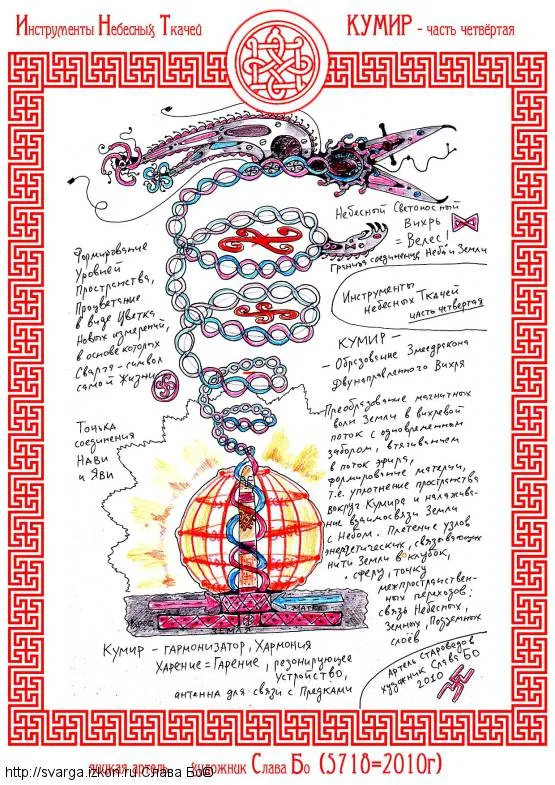 Инструменты Небесных Ткачей
КУМИР - часть четвёртая
Небесный Светоносный
Вихрь
= Велес!
Граница соединения Неба и Земли
Формирование
Уровней
Пространства,
Процветание
в виде Цветка
Новых измерений,
в основе которых
Сварга - символ
самой Жизни
Инструменты
Небесных Ткачей
часть четвертая
КУМИР -
- Образование Змеедракона
Двунаправленного Вихря
Преобразование магнитных
волн Земли в вихревой
поток с одновременным
забором, втягиванием
в поток эфира,
формирование материи,
т.е. уплотнение пространства
вокруг Кумира и налажива-
ние взаимосвязи Земли
с Небом. Плетение узлов
энергетических, связывающих
нити Земли в клубок,
сферу, точку
межпространствен-
ных переходов:
связь Небесных,
Земных, Подземных
слоёв
Точка
соединения
НАВИ
и ЯВИ
МАТКА
ЗЕМЛЯ
КУМИР - гармонизатор, Хармония
Харение = Гарение, резонирующее
устройство,
антенна для связи с Предками
Артель староведов
художник Слава Бо
2010
артель художник Слава Бо (5718=2010г)
http://svarga.izkon.ru/Слава Бо©